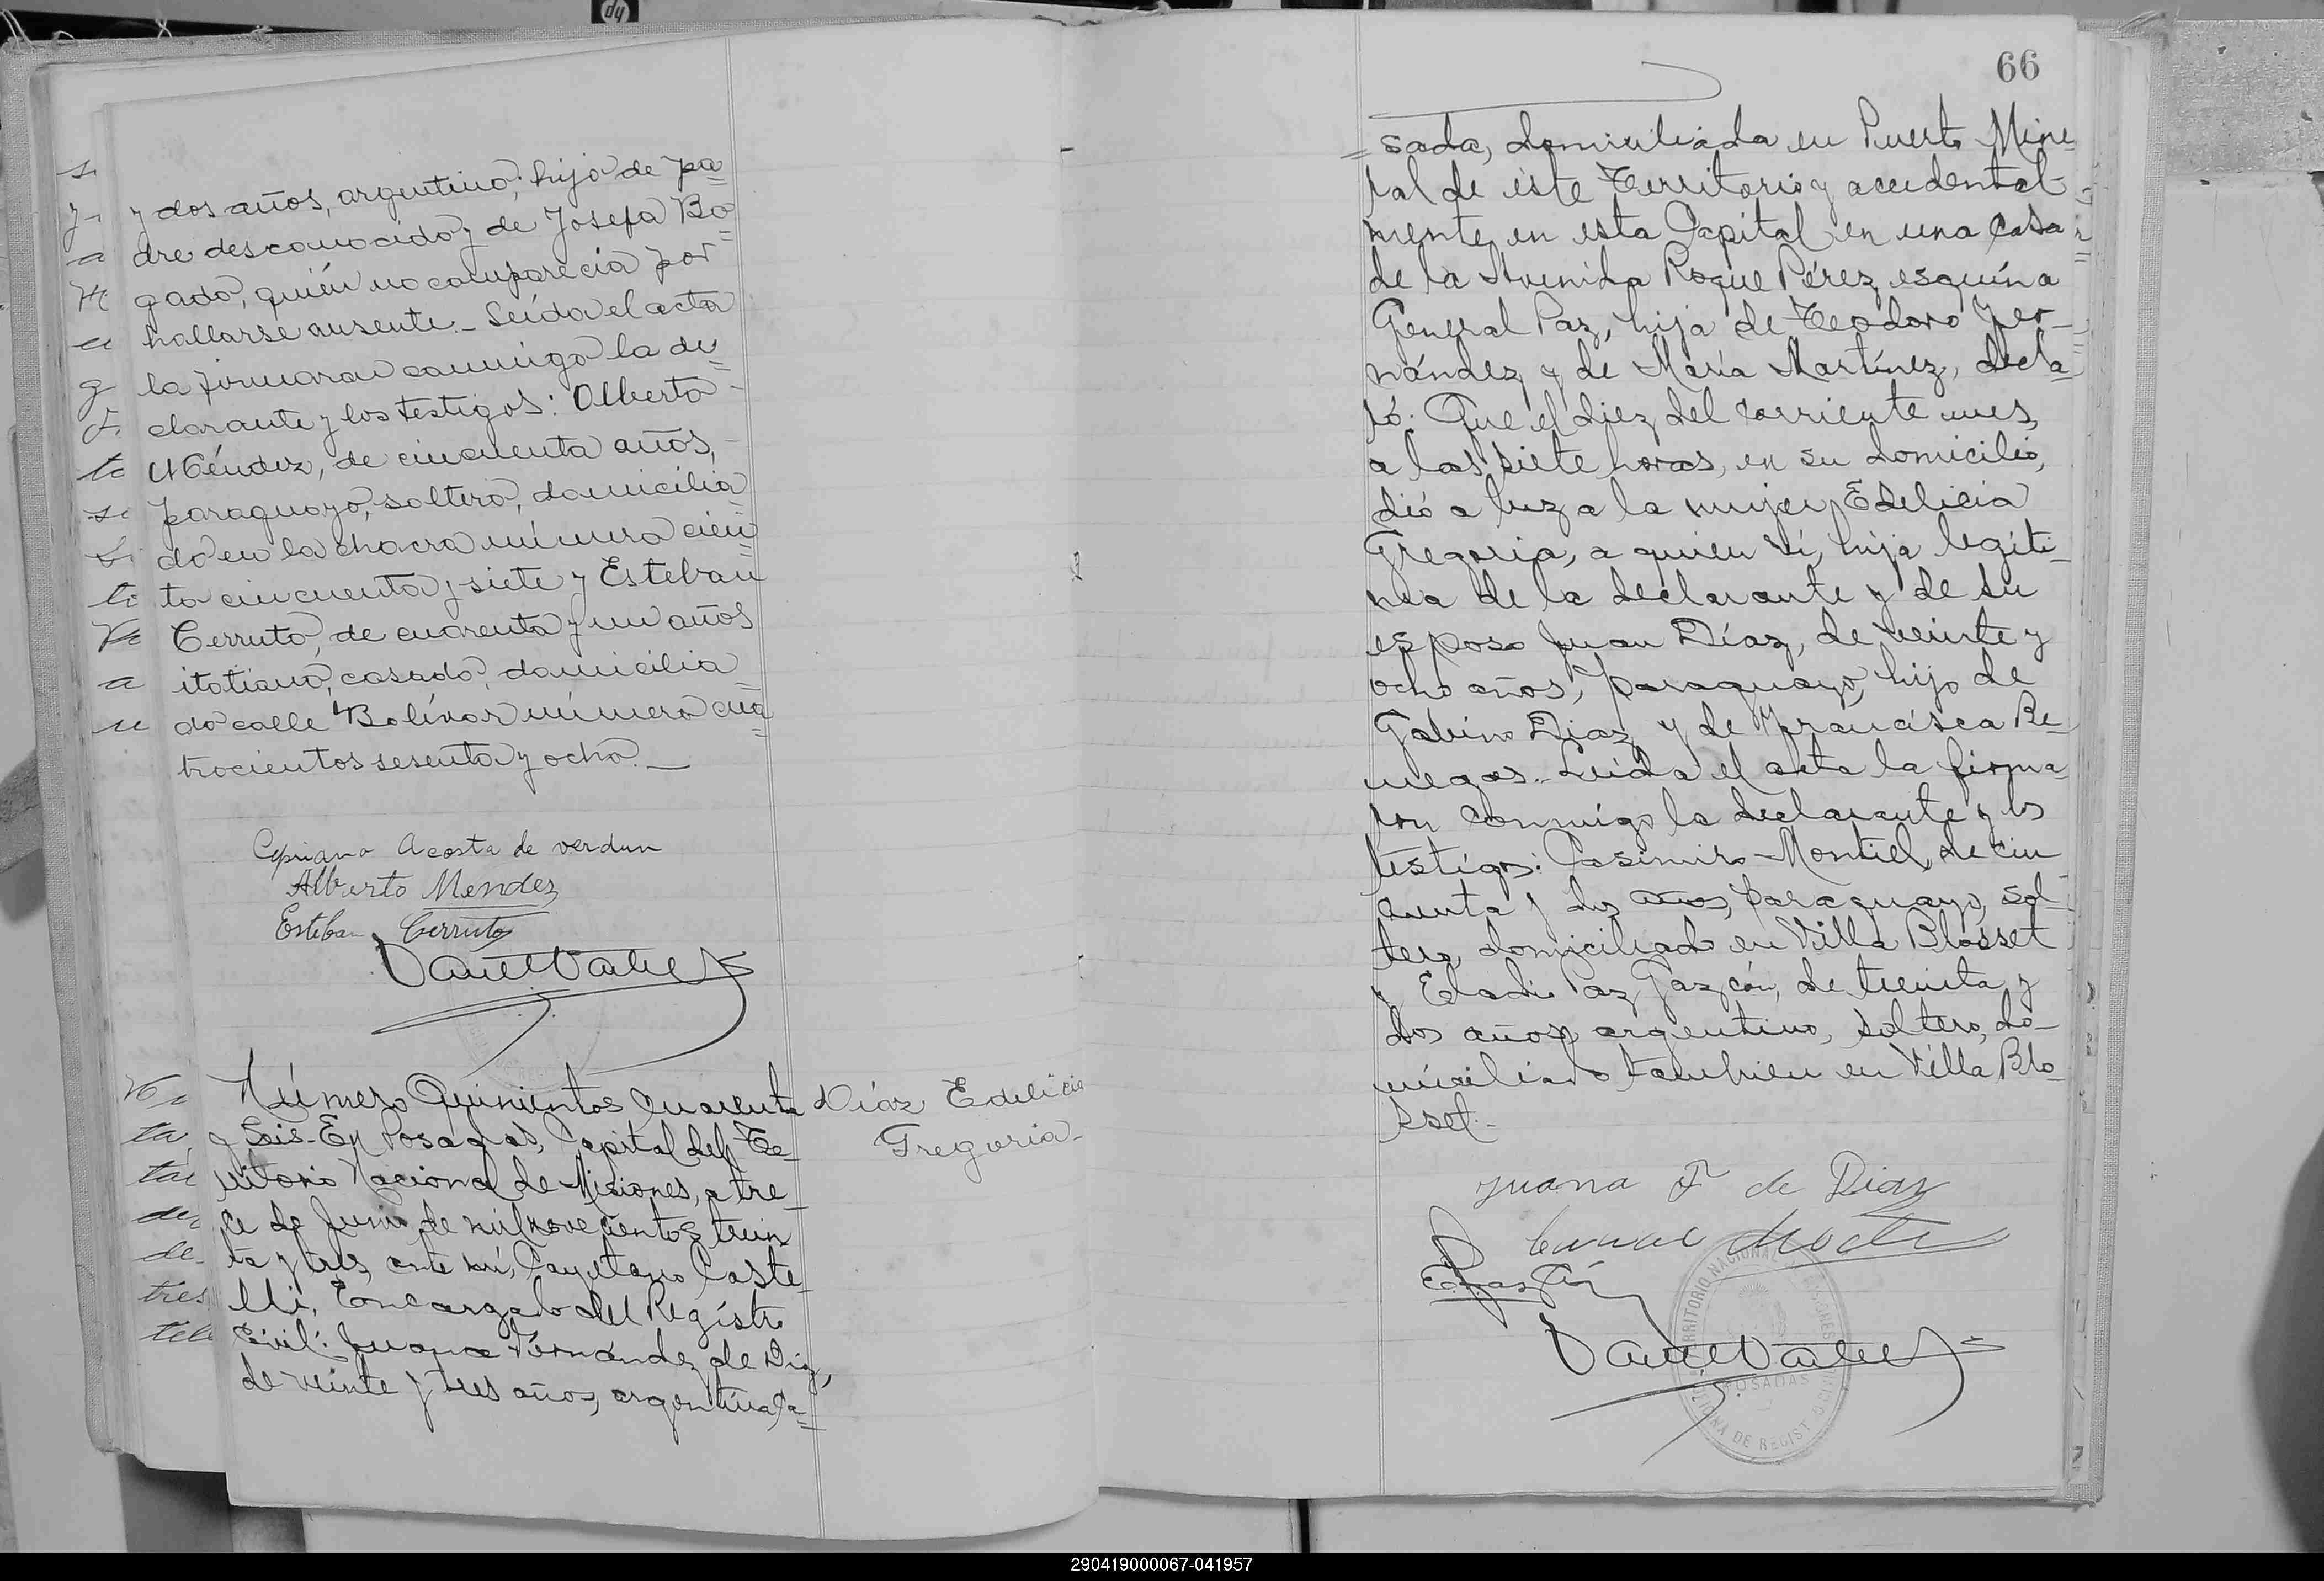 y dos años, argentino, hijo de pa=
dre desconocido y de Josefa Bo=
gado, quién no comparecia por
hallarse ausente._ Leída el acta
la firmaron conmigo la de=
clarante y los testigos: Alberto
Méndez, de cincuenta años,
paraguayo, soltero, domicilia=
do en la chacra número cien=
to cincuenta y siete y Esteban
Cerruto, de cuarenta y un años
italiano, casado, domicilia=
do calle Bolívar número cua=
trocientos sesenta y ocho._
Cipriana Acosta de verdun
Alberto Mendez
Esteban Cerruto
Número Quinientos cuarenta
y Seis-En Posadas, Capital del Te-
rritorio Nacional de Misiones, a tre-
ce de Junio de mil novecientos trein
ta y tres, ante mí, Cayetano Caste-
lli, Encargado del Registro
Civil: Juana Fernández de Diaz,
de veinte y tres años, argentina, ca=
Díaz Edelicia
Gregoria-
66
=sada, domiciliada en Puerto Mine=
ral de éste Territorio y accidental-
mente en esta Capital en una casa
de la Avenida Roque Pérez esquína
General Paz, hija de Teodoro Fer-
nández y de María Martínez, decla=
ró: Que el diez del corriente mes,
a las siete horas, en su domicilio,
dió a luz a la mujer Edelicia
Gregoria, a quien ví, hija legíti-
ma de la declarante y de su
esposo Juan Díaz, de veinte y
ocho años, paraguayo, hijo de
Gabino Diaz y de Francisca Be=
negas.. Leída el acta la firma=
ron conmigo la declarante y los
testigos: Casimiro Montiel, de cin
cuenta y dos años, paraguayo, sol-
tero, domiciliado en Villa Blosset
y Eladio Paz Gazcón, de treinta y
dos años, argentino, soltero, do-
miciliado tambien en Villa Blo-
sset.-
Juana F de Diaz
TERRITORIO NACIONAL DE MISIONES
POSADAS
OFICINA DE REGISTRO CIVIL
290419000067-041957